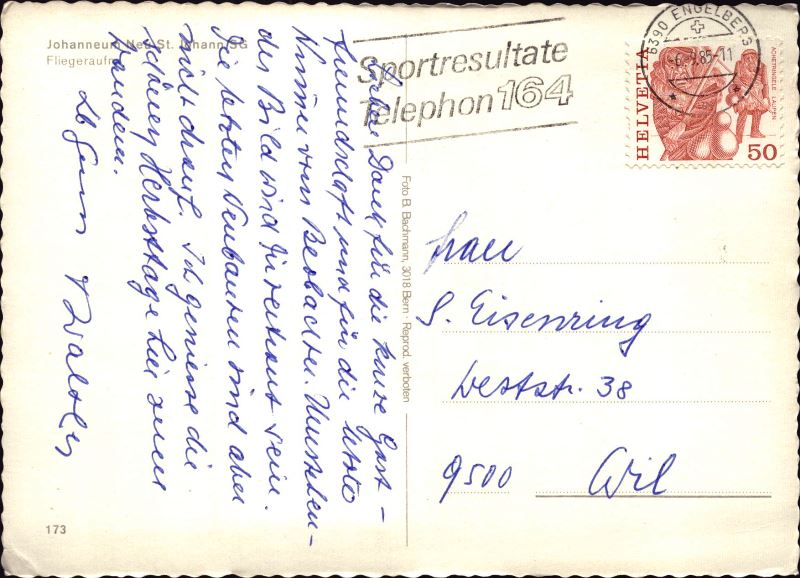 Johanneum Neu St. Johann SG
Fliegeraufn
Sportresultate
Telephon 164
6390 ENGELBERG
85-11
HELVETIA
ACHETRINGELE LAUPEN
50
Lieben Dank für die kurze Gast-
freundschaft und für die letzte
Nummer vom Beobachter. Umstehen-
des Bild wird Dir bekannt sein.
Die letzten Neubauten sind aber
nicht drauf. Ich geniesse die
schönen Herbsttage hier zum
Wandern.
Lb Gruss
Walter
Foto B. Bachmann, 3018 Bern - Reprod. verboten
Frau
S. Eisenring
Weststr. 38
9500 Wil
173